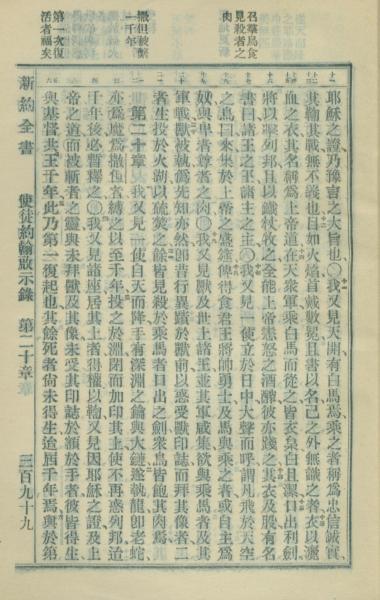 召羣鳥食
見殺者之
肉
撒但被繫
一千年
第一次復
活者福矣
耶穌之證乃豫言之大旨也〇我又見天開有白馬焉乘之者稱爲忠信誠實
其鞫其戰無不義也目如火焰首戴數冕且書以名己之外無識之者衣以灑
血之衣其名稱爲上帝道在天衆軍乘白馬而從之皆衣枲白且潔口出利劍
將以擊列邦且以鐵杖牧之全能上帝憝怒之酒醡彼亦踐之其衣及股有名
書曰諸王之王諸主之主〇我又見一使立於日中大聲而呼謂凡飛於天空
之鳥曰來集於上帝之盛筵俾得食君王將帥勇士及馬與乘之者或自主爲
奴與卑者尊者之肉〇我又見獸及世上諸王並其軍咸集欲與乘馬者及其
軍戰獸被執僞先知亦然卽昔行異蹟於獸前以惑受獸印誌而拜其像者二
者生投於火湖以硫焚之餘皆見殺於乘馬者口出之劍衆鳥皆飽其肉焉
第二十章 我又見一使自天而降手有深淵之鑰與大鏈遂執龍卽老蛇
亦爲魔爲撒但者縛之以至千年投之於淵閉而加印其上使不再惑列邦迨
千年後必暫釋之〇我又見諸座居其上者得權以鞫又見因耶穌之證及上
帝之道而被斬者之靈與未拜獸及其像未受其印誌於額於手者彼皆得生
與基督共王千年此乃第一復起也其餘死者尚未得生迨屆千年焉與於第
新約全書 使徒約翰啟示錄 第二十章 三百九十九